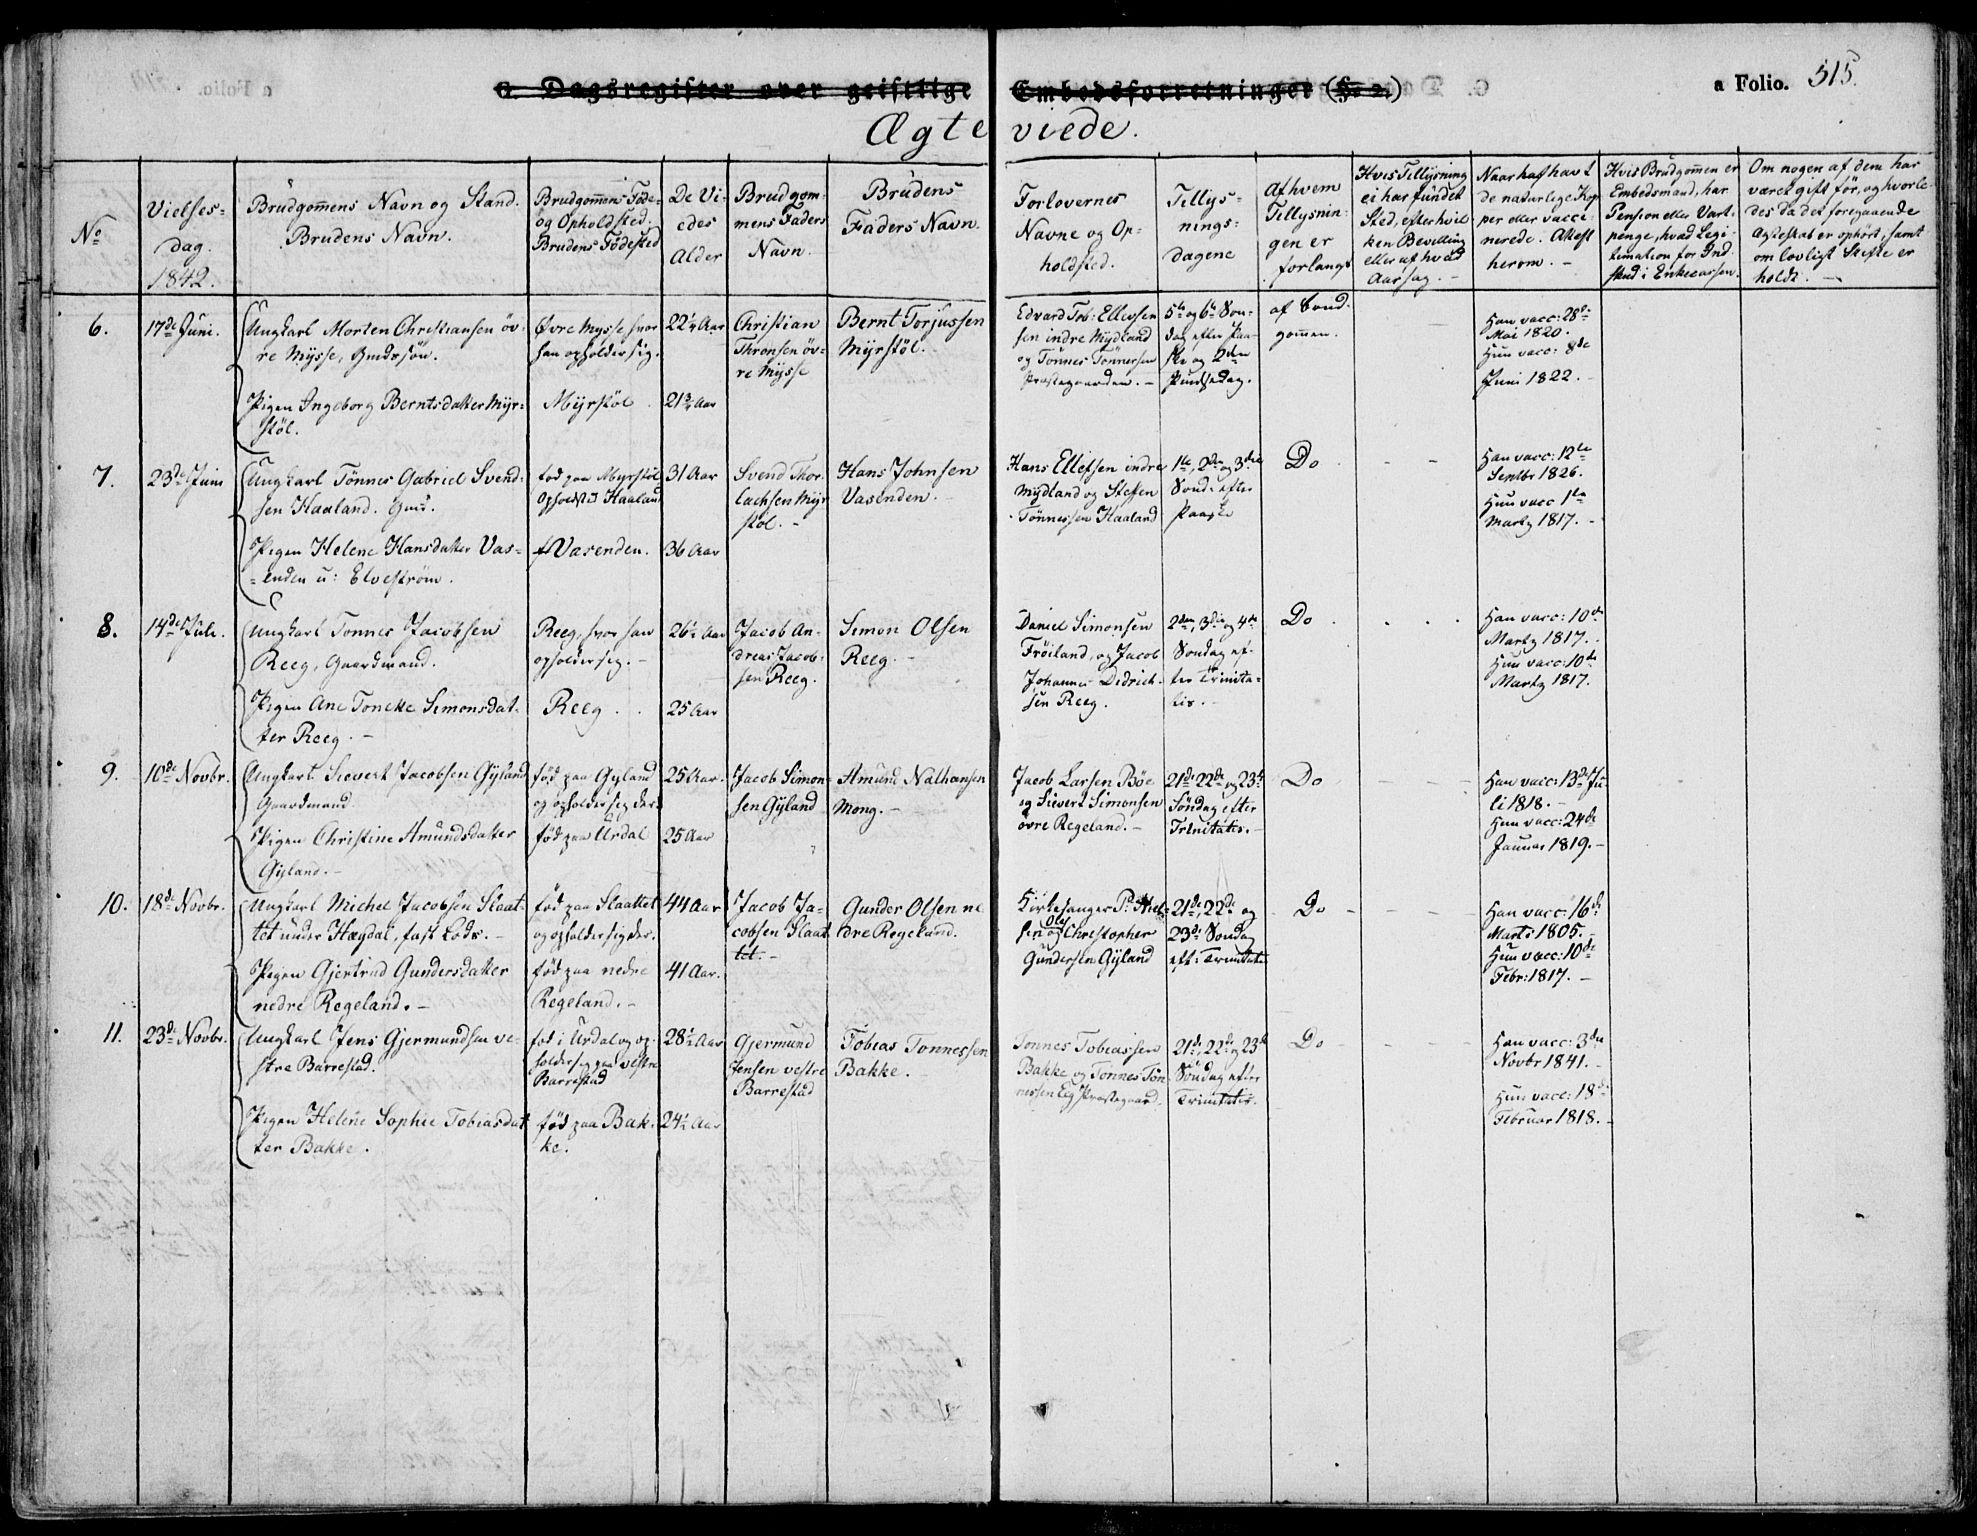 C. Dagsregister over geistlige Embedsforretninger (§. 2.)
a Folio. 515.
Ægteviede.
No
Vielses-
dag.
1842.
Brudgommens Navn og Stand.
Brudens Navn.
Brudgommens Føde-
og Opholdssted.
Brudens Fødested
De Vi-
edes
Alder
Brudgom-
mens Faders
Navn.
Brudens
Faders Navn.
Forlovernes
Navne og Op-
holdsted.
Tillys-
nings-
dagene
Af hvem
Tillysnin-
gen er
forlangt
Hvis Tillysning
ei har fundet
Sted, efter hvil
ken Bevilling
eller af hvad
Aarsag. -
Naar haf havt
de naturlige Kop
per eller vacci-
nerede. Attest
herom. -
Hvis Brudgommen er
Embedsmand, har
Pension eller Vart-
penge, hvad Legi-
timation for Ind-
skud i Enkecassen.
Om nogen af dem har
været gift før, og hvorle-
des da det foregaaende
Ægteskab er ophørt, samt
om lovligt Skifte er
holdt. -
6.
17de Juni.
Ungkarl Morten Christiansen öv-
re Mysse, Gmdssön.
Pigen Ingeborg Berntsdatter Myr-
stöl.
Övre Mysse hvor
han opholder sig.
Myrstöl
22¼ Aar
21¾ Aar
Christian
Thronsen öv-
re Mysse
Bernt Torjussen
Myrstöl.
Edvard Tob: Ellevsen
sen indre Mydland
og Tönnes Tönnersen
Præstegaarden. -
5te og 6te Son-
dag efter Paa-
ske og 2den
Pindsedag.
af Brud-
gommen.
Han vacc: 28de
Mai 1820.
Hun vacc: 8de
Juni 1822. -
7.
23de Juni
Ungkarl Tönnes Gabriel Svend-
sen Haaland. Gmd.
Pigen Helene Hansdatter Vas-
enden u: Elvestrøm.
fød paa Myrstöl
Opholdst. Haaland
f Vasenden.
31 Aar
36 Aar
Svend Thor-
lachsen Myr
stöl. -
Hans Johnsen
Vasenden. -
Hans Ellefsen indre
Mydland og Steffen
Tönnessen Haaland
1te, 2den og 3die
Sond: efter
Paaske
Do
Han vacc: 12te
Septbr 1826.
Hun vacc 1te
Martz 1817. -
8.
14de Juli.
Ungkarl Tonnes Jacobsen
Reeg, Gaardmand.
Pigen Ane Tonette Simonsdat-
ter Reeg. -
Reeg, hvor han
opholder sig. -
Reeg
26½ Aar
25 Aar
Jacob An-
dreas Jacob-
sen Reeg.
Simon Olsen
Reeg. -
Daniel Simonsen
Fröiland, og Jacob
Johannes Didrich-
sen Reeg.
2den, 3die og 4de
Sondag ef-
ter Trinita-
tis. -
Do
Han vacc: 10de
Martz 1817.
Hun vacc: 10de
Martz 1817.
9.
10de Novbr.
Ungkarl Sievert Jacobsen Gyland
Gaardmand
Pigen Christine Amundsdatter
Gyland. -
fød paa Gyland
og opholder sig der.
fød paa Urdal
25 Aar.
25 Aar
Jacob Simon-
sen Gyland
Amund Nathansen
Mong. -
Jacob Larsen Böe
og Sivert Simonsen
övre Regeland. -
21de 22de og 23de
Søndag efter
Trinitatis. -
Do
Han vacc: 13de Ju-
li 1818. -
Hun vacc: 24de
Januar 1819. -
10.
18de Novbr.
Ungkarl Michel Jacobsen Slaat-
tet under Hægdal, fast Lods. -
Pigen Gjertrud Gundersdatter
nedre Regeland. -
fød paa Slaattet
og opholder sig der.
fød paa nedre
Regeland. -
44 Aar
41 Aar.
Jacob Ja-
cobsen Slaat
tet. -
Gunder Olsen ne
dre Regeland.
Kirkesanger P.
sen og Ole Christopher
Gundersen Gyland
21de, 22de og
23de Sondag
eft: Trinitatis
Do
Han vacc: 16de
Marts 1805. -
Hun vacc: 10de
Febr: 1817. -
11.
23de Novbr.
Ungkarl Jens Gjermundsen ve-
stre Barrestad.
Pigen Helene Sophie Tobiasdat
ter Bakke.
fød i Urdal og op-
holder sig paa vestre
Barrestad
fød paa Bak-
ke.
28½ Aar
24½ Aar
Gjermund
Jensen vestre
Barrestad
Tobias Tonnessen
Bakke. -
Tonnes Tobiassen
Bakke og Tonnes Tön-
nessen Eeg Præstegaard.
21de, 22de og 23de
Søndag efter
Trinitatis.
Do
Han vacc: 3die
Novbr 1841. -
Hun vacc: 18de
Februar 1818. -